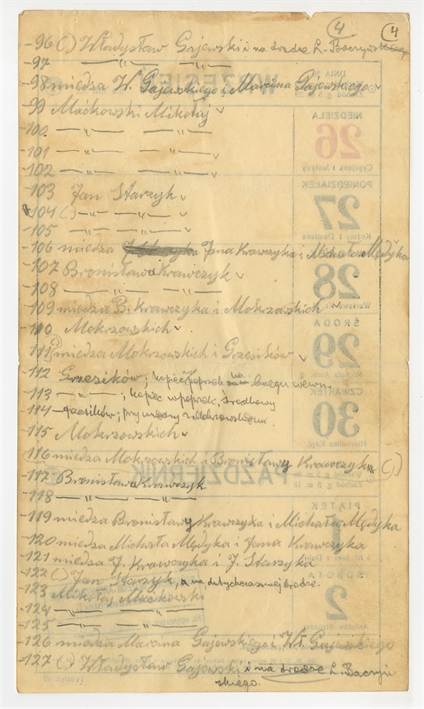 4 4
-96 () Władysław Gajewski i na drodze L.
-97 —"— —"—
-98 miedza W. Gajewskiego i Marcina Gajewskiego v
-99 Maćkowski Mikołaj v
-100 —"— —"—
-101 —"— —"— v
-102 —"— —"— v
-103 Jan Starzyk v
-104 () —"— —"— v
-105 —"— —"— v
-106 miedza Jana Krawczyka i Michała Mędyka
-107 Bronisława Krawczyk v
-108 —"— —"— v
-109 miedza B. Krawczyka i Mokrzoskich v
-110 Mokrzowskich v
-111 miedza Mokrzoskich i Grzesików v
-112 Grzesików; kopiec na
-113 —"—; kopiec wpoprzek, środkowy
-114 —grzesików; przy miedzy z Mokrzowskiemi
-115 Mokrzowskich v
-116 miedza Mokrzoskich i Bronisławy Krawczyk ()
-117 Bronisława Krawczyk
-118 —"— —"— —"—
-119 miedza Bronisławy Krawczyka i Michała Mędyka
-120 miedza Michała Mędyka i Jana Krawczyka
-121 miedza J. Krawczyka i J. Starzyka
-122 () Jan Starzyk, a na dotychczasowej drodze
-123 Mikołaj Maćkowski
-124 —"— —"—
-125 —"— —"—
-126 miedza Marcina Gajewskiego i Wł. Gajewskiego
-127 () Władysław Gajewski i na drodze L.
skiego.
WRZESIEŃ
NIEDZIELA
26
Cypriana i Justyny
PONIEDZIAŁEK
27
28
ŚRODA
29
CZWARTEK
30
PAŹDZIERNIK
PIĄTEK
1
SOBOTA
2